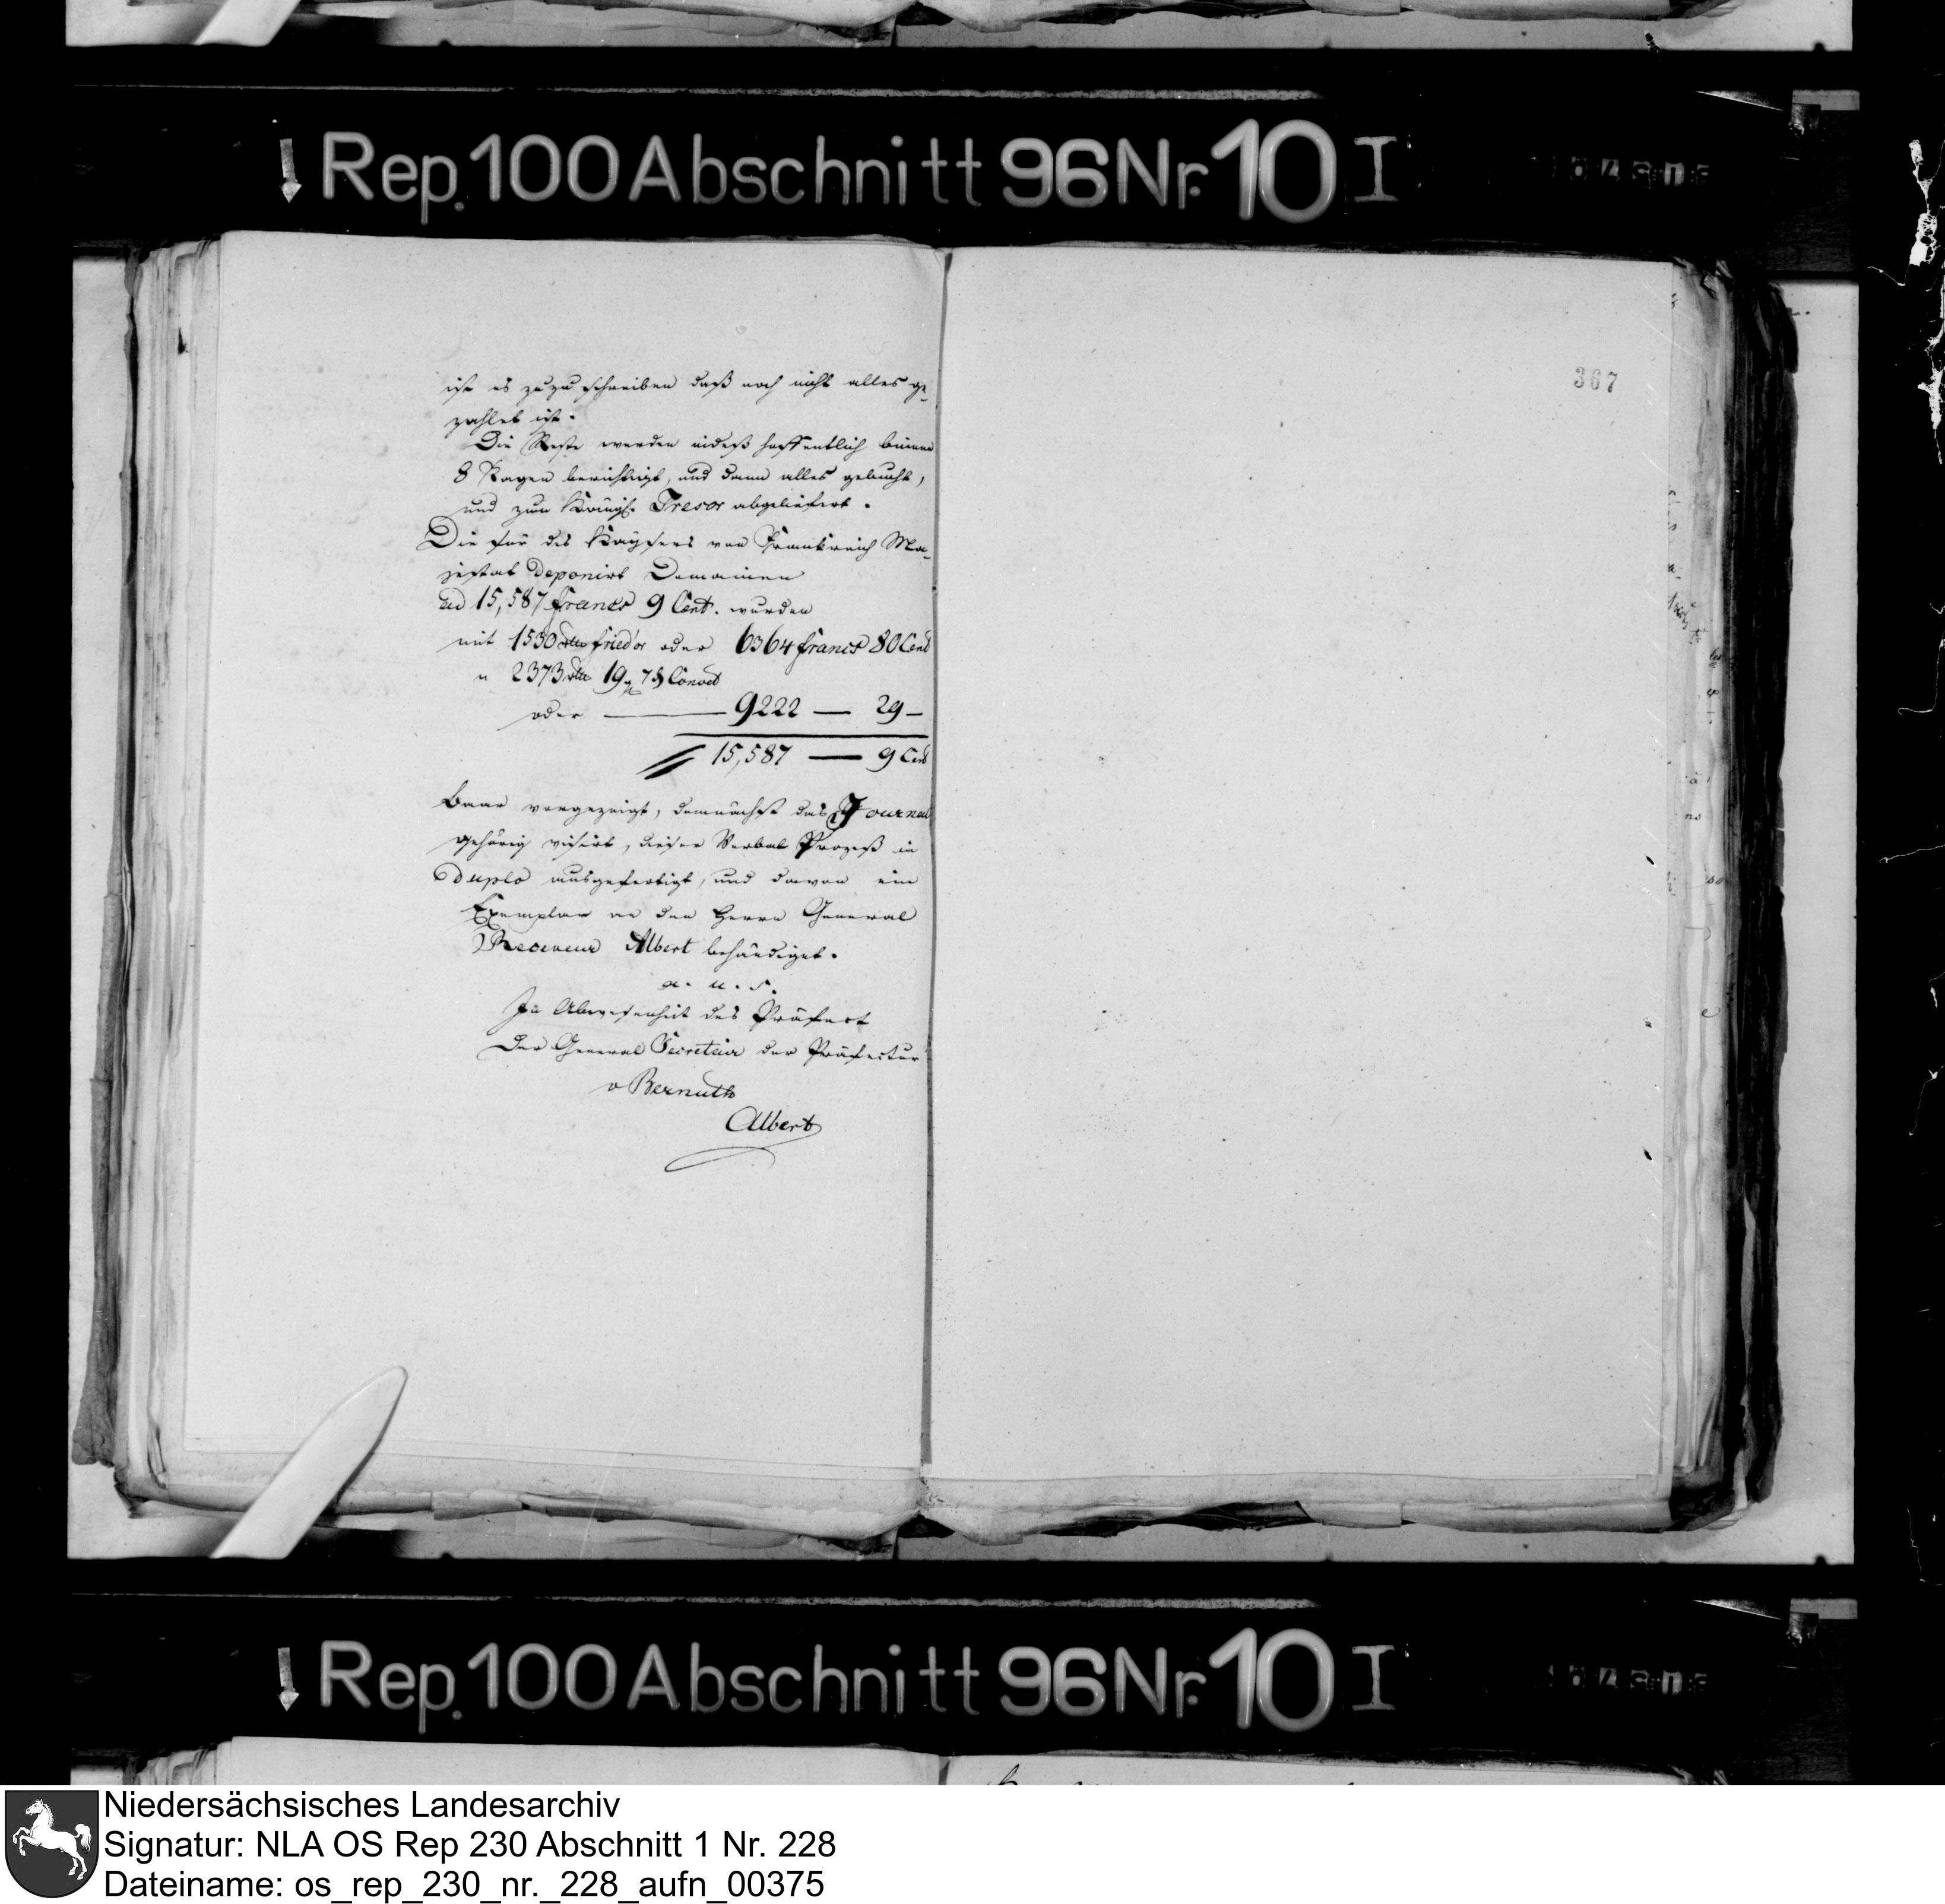 Rep. 100 Abschnitt 96 Nr. 10 I
367
ist es zuzuschreiben daß noch nicht alles ge-
zahlet ist.
Die Reste werden indeß hoffentlich binnen
8 Tagen berichtigt, und dann alles gebucht,
und zum Königl. Tresor abgeliefert.
Die für des Kaysers von Frankreich Ma-
jestät deponirt Domainen
ad 15,587 francs 9 Cent. wurden
mit 1530 rtlr fried'or oder 6364 francs 80 Cent
" 2373 rtlr 19 g 7 d Convet
oder — 9222 — 29 —
15,587 — 9 Cent
baar vorgezeigt, demnächst das Journal
gehörig visirt, dieser Verbal Prozeß in
duplo ausgefertigt, und davon ein
Exemplar an den Herrn General
Receveur Albert behändiget.
a. u. s.
In Abwesenheit des Präfect
Der General Secretair der Präfectur
v Bernuth
Albert
Rep. 100 Abschnitt 96 Nr. 10 I
Niedersächsisches Landesarchiv
Signatur: NLA OS Rep 230 Abschnitt 1 Nr. 228
Dateiname: os_rep_230_nr._228_aufn_00375